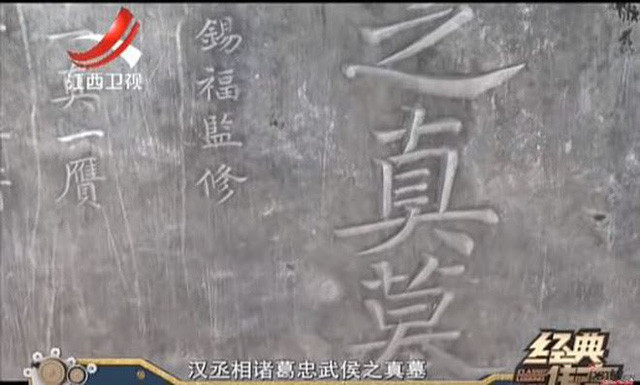 江西卫视
之真墓
錫福監修
真一贋
汉丞相诸葛忠武侯之真墓
经典